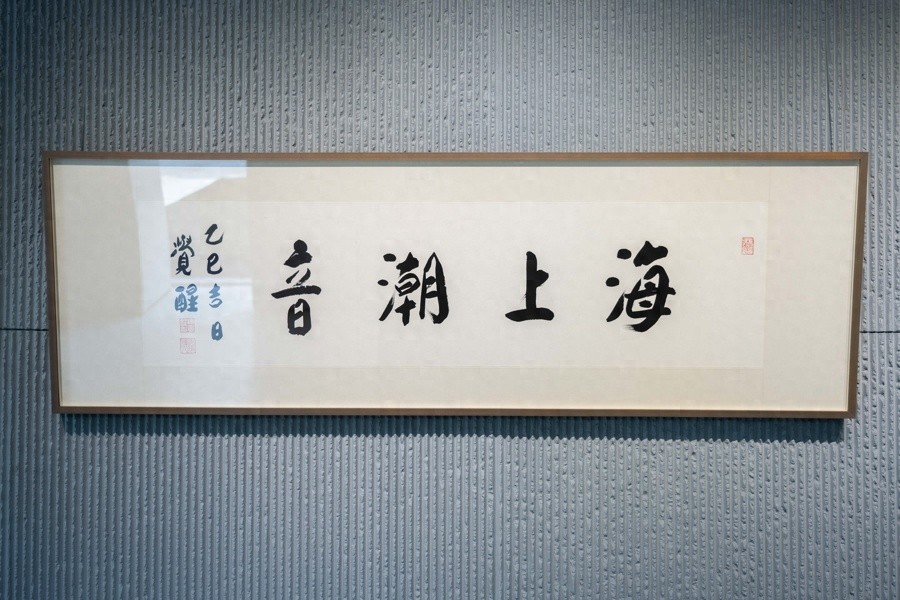 海上潮音
乙巳吉日
覺醒